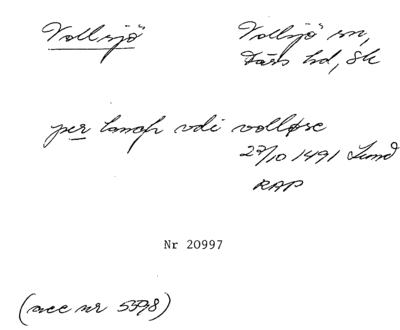 Vollsjö
Vollsjö sn,
Färs hd, Sk
per lanæh vdi volløse
27/10 1491 Lund
RAP
Nr 20997
(acc nr 5398)